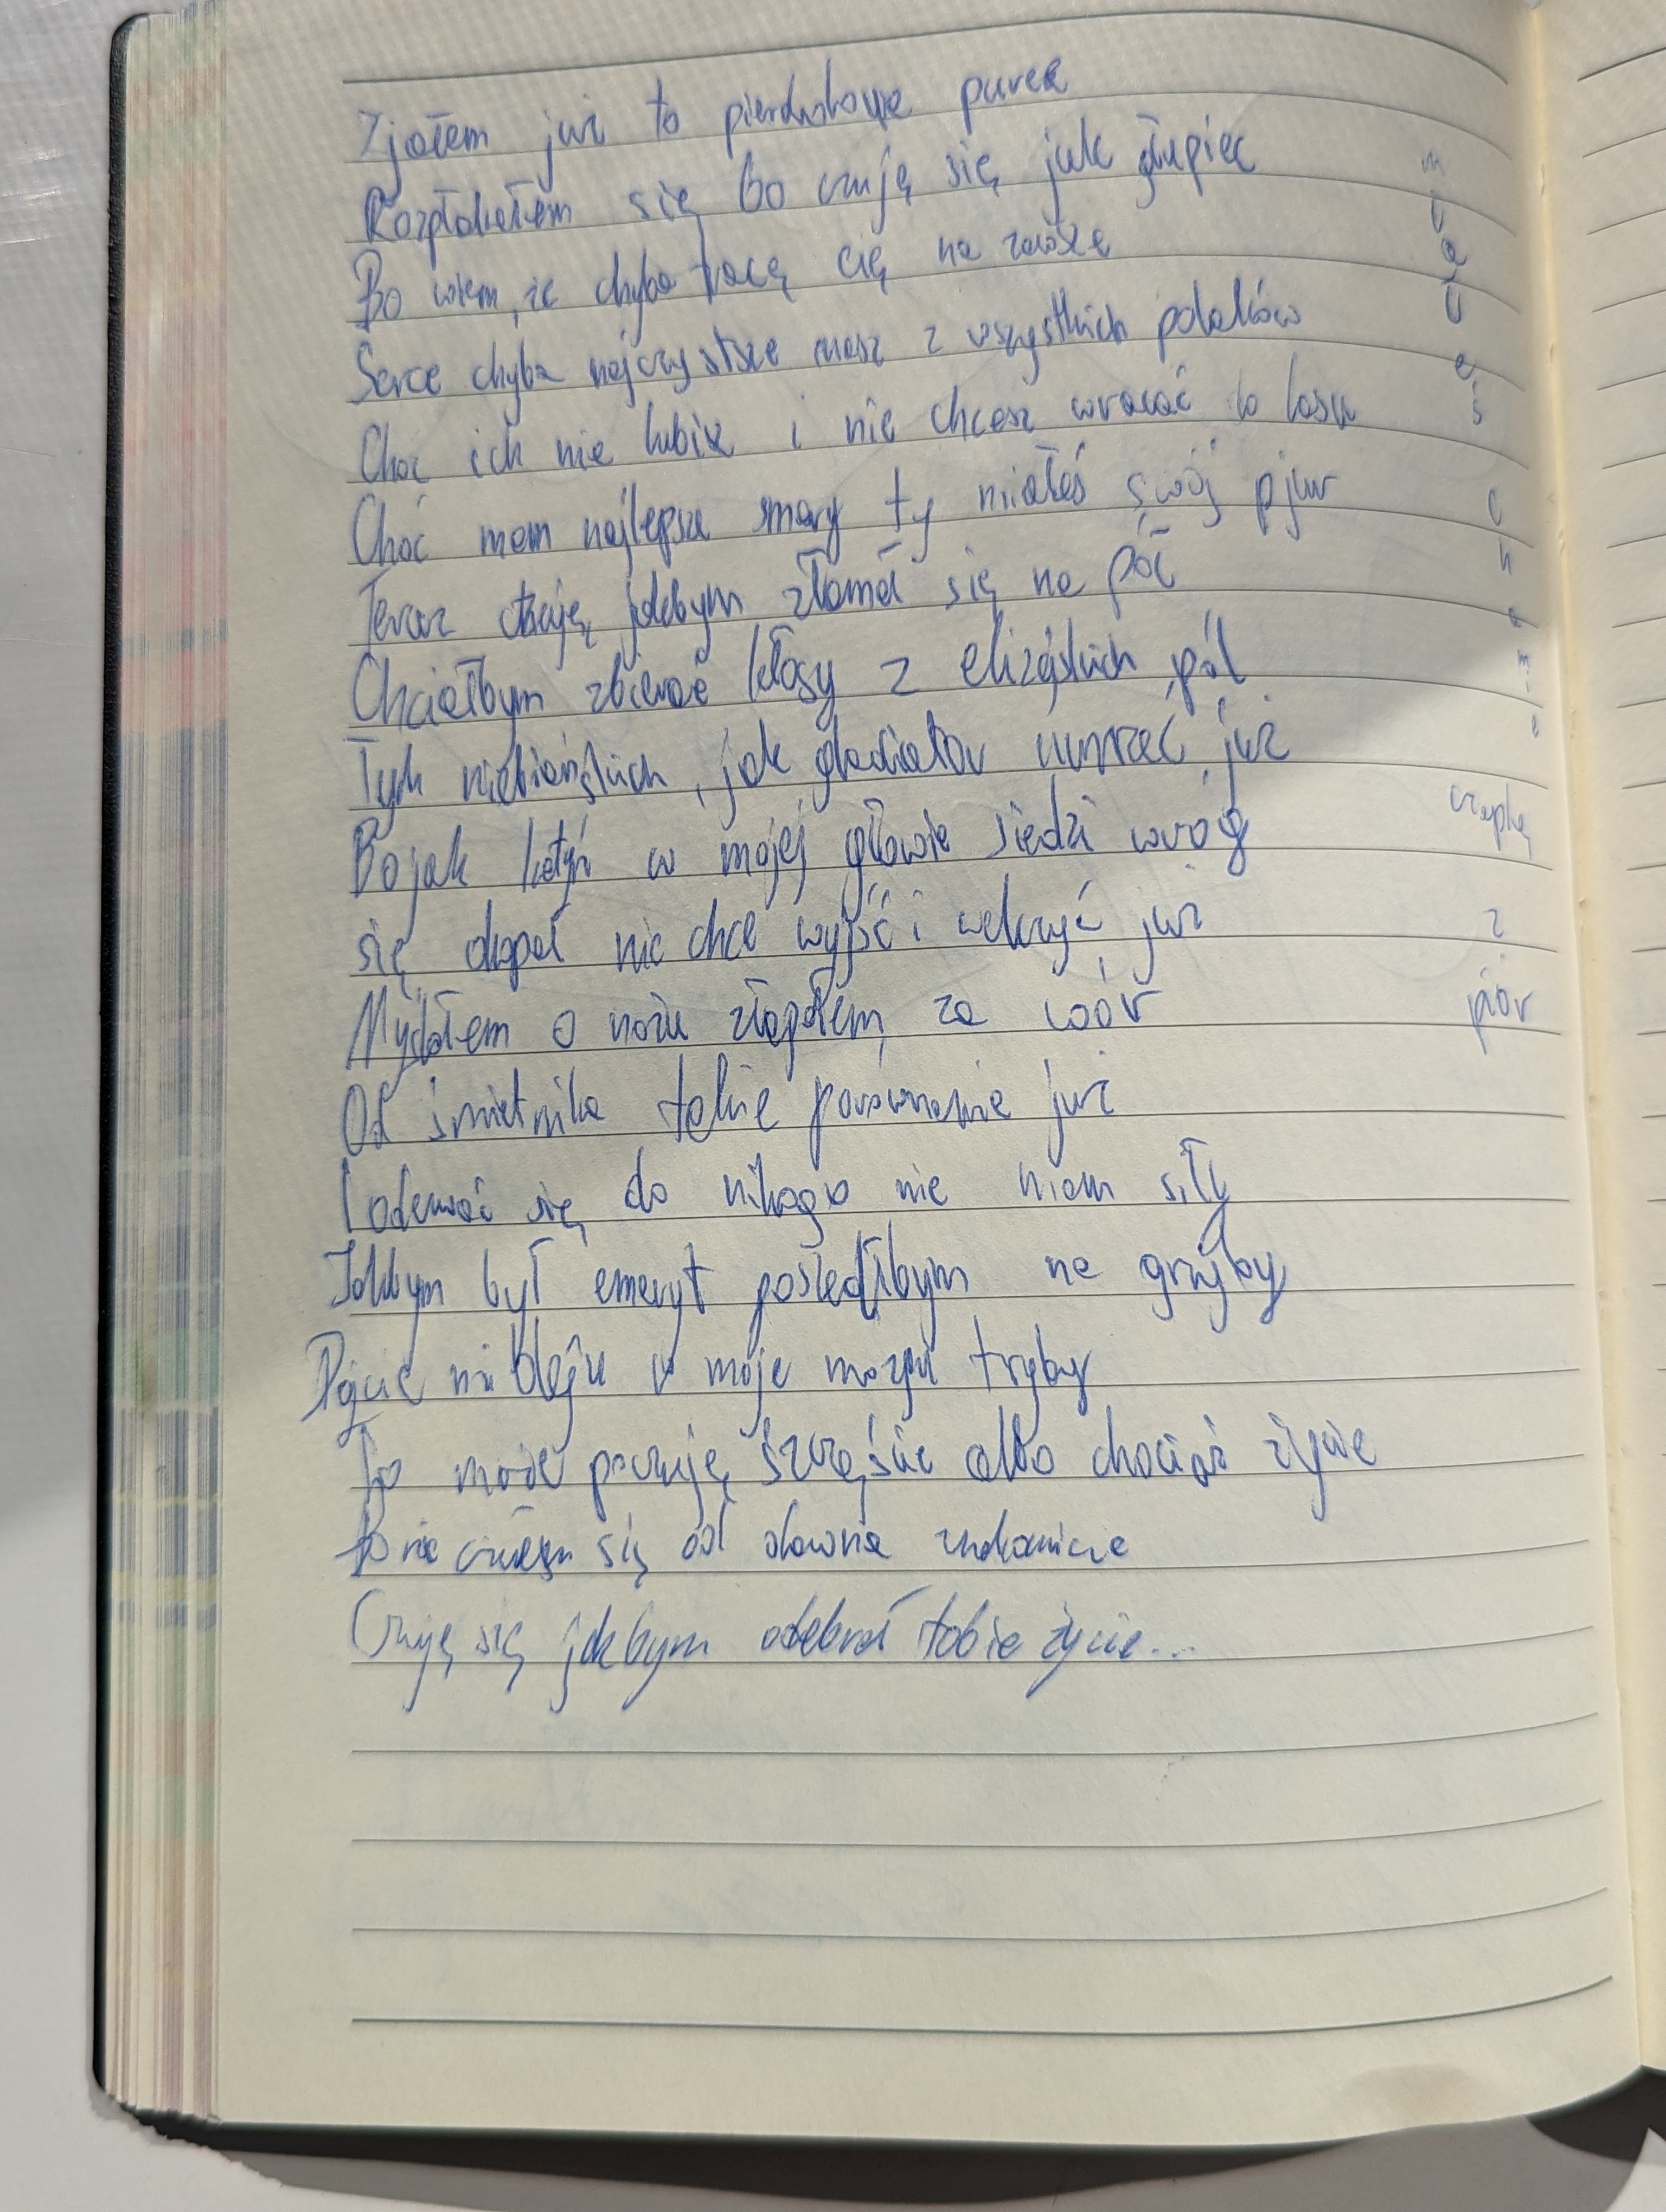 Zjadłem już to pierdolone puree
Rozpłakałem się bo czuję się jak głupiec
Bo wiem, że chyba tracę cię na zawsze
Serce chyba najczystsze masz z wszystkich polaków
Choć ich nie lubisz i nie chcesz wracać do lasu
Choć mam najlepsze smary ty miałeś swój pjur
Teraz czuję jakbym złamał się na pół
Chciałbym zbierać kłosy z elizejskich pól
Tych niebiańskich, jak gladiator umrzeć już
Bo jak kotyń w mojej głowie siedzi wróg
się okopał nie chce wyjść i walczyć już
Myślałem o nożu złapałem za wór
Od śmietnika takie porównanie już
I odezwać się do nikogo nie mam siły
Jakbym był emeryt poszedłbym na grzyby
Dajcie mi oleju w moje mózgu tryby
To może poczuję szczęście albo chociaż życie
Bo nie czułem się od dawna znakomicie
Czuję się jakbym odebrał tobie życie...
miałeś
czapkę
z
piór